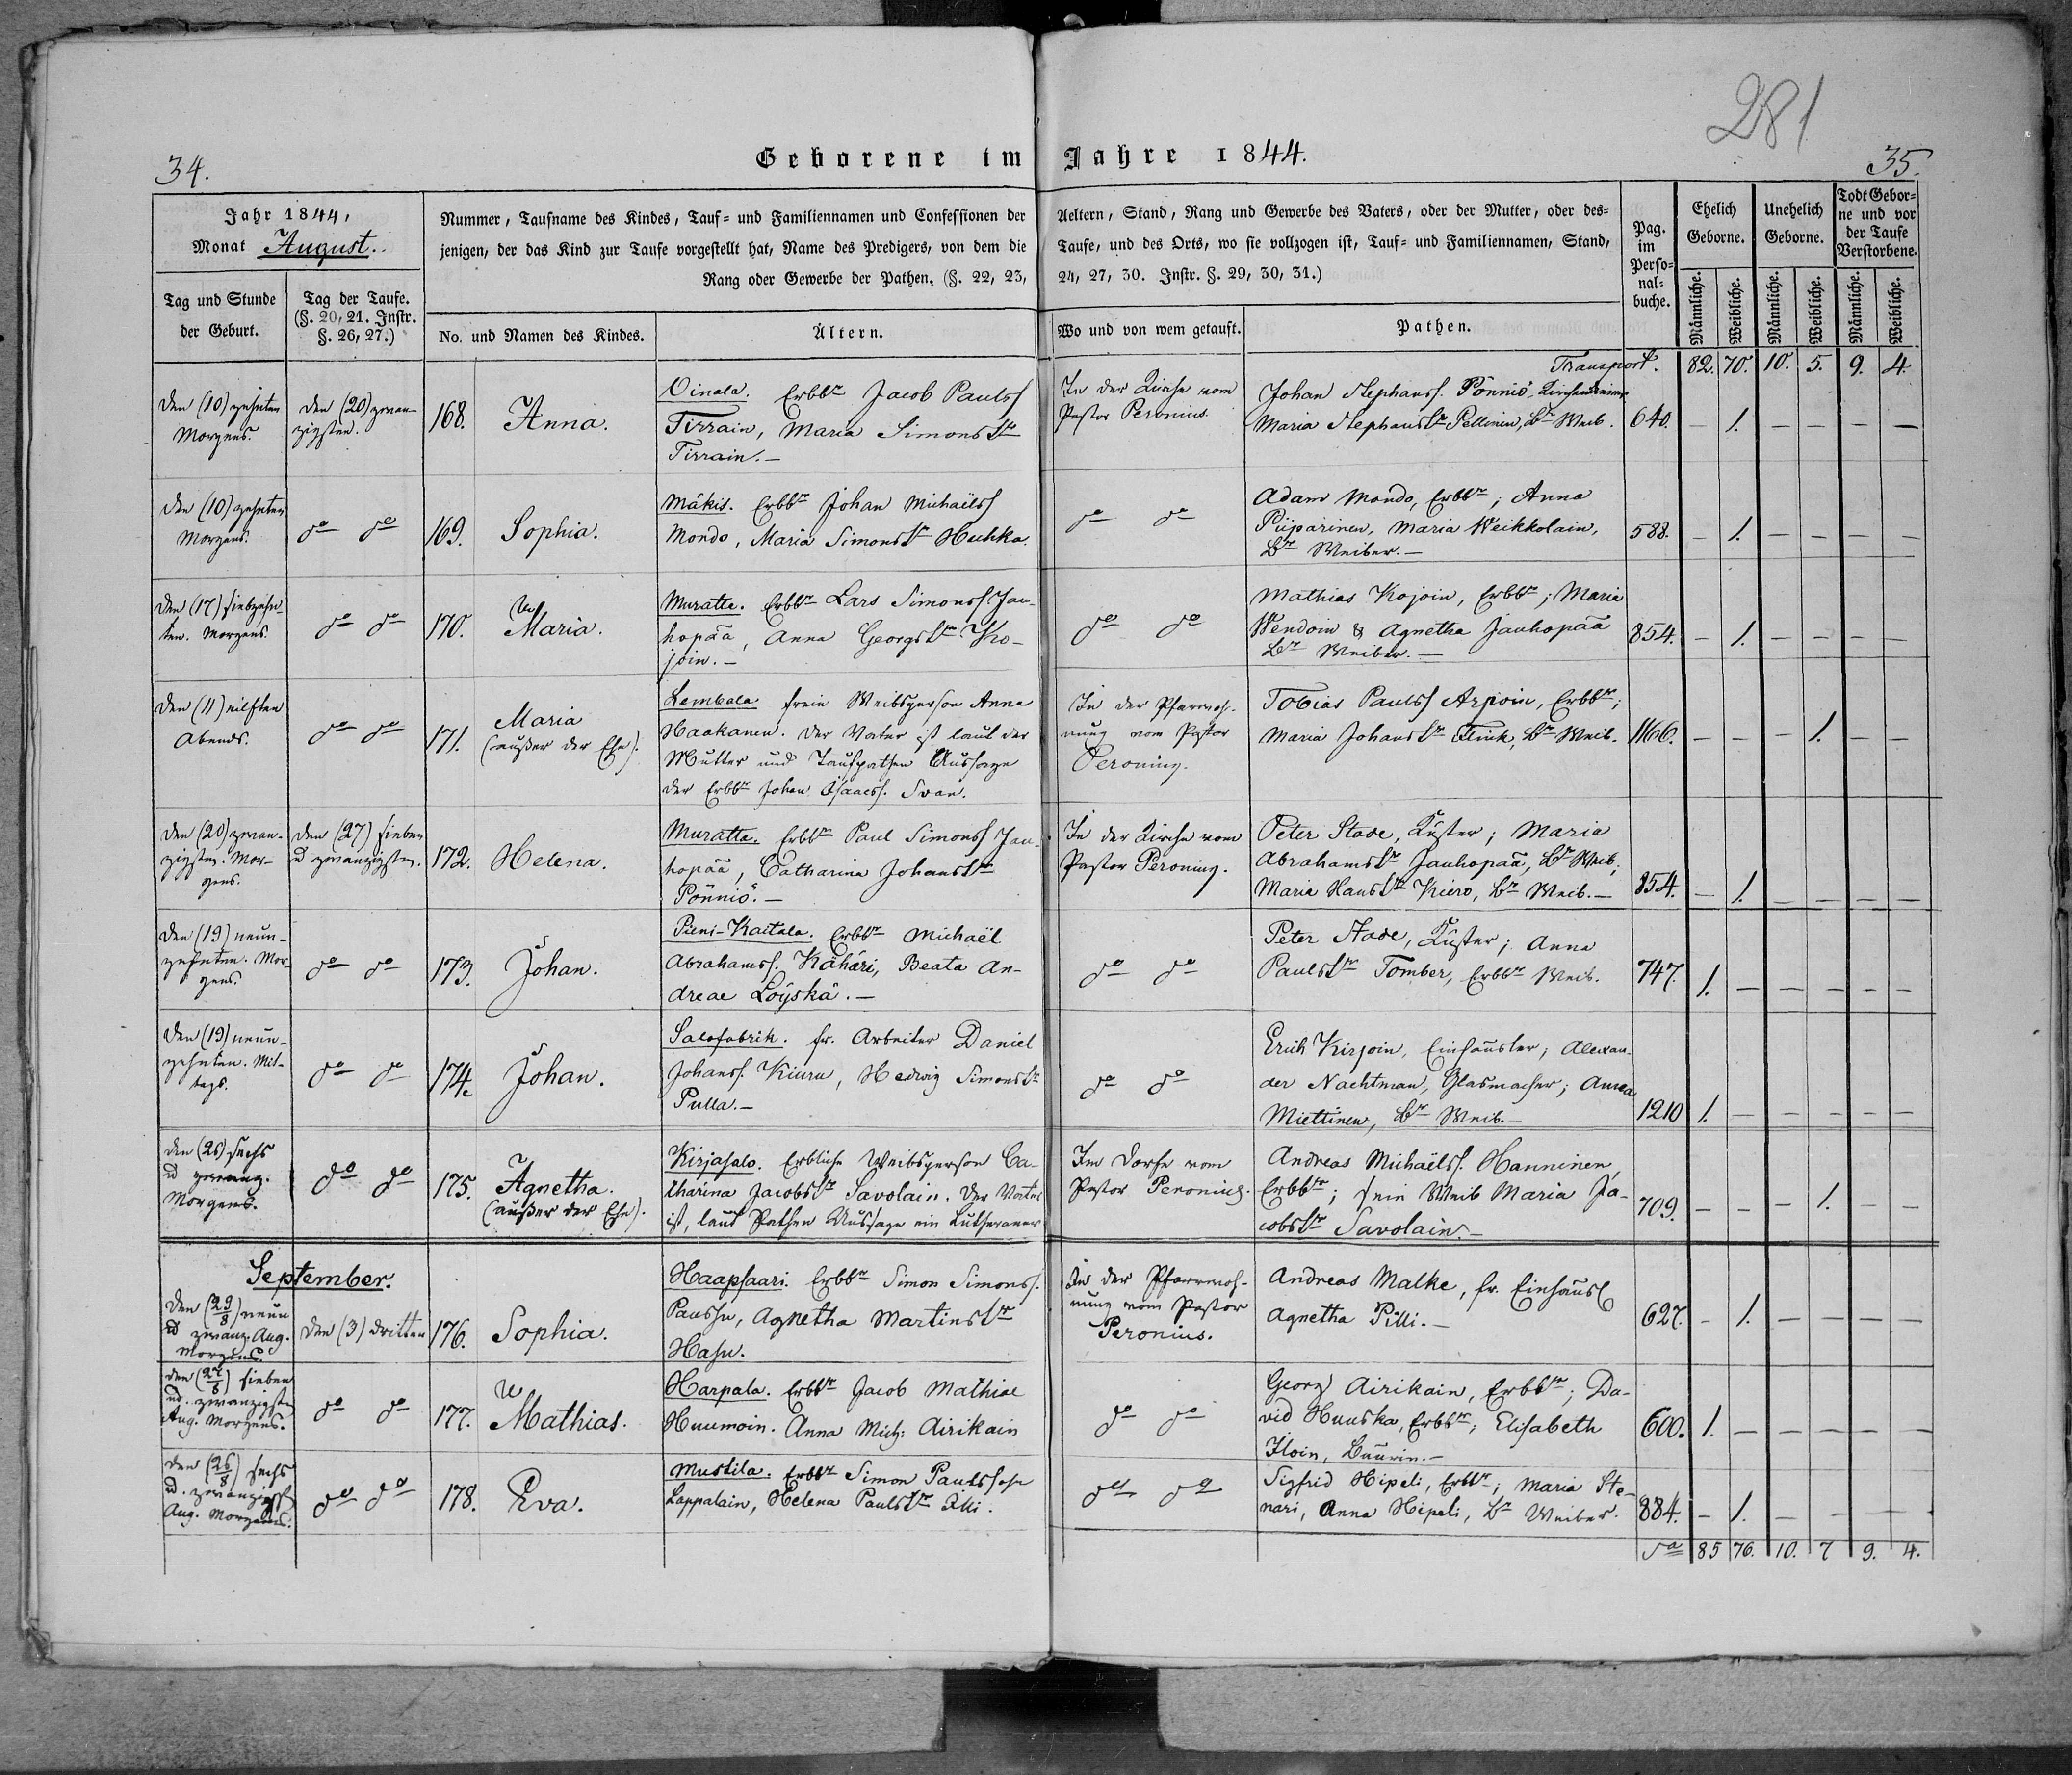 281
34.
Geborene im Jahre 1844.
35.
Jahr 1844,
Monat August.
Nummer, Taufname des Kindes, Tauf- und Familiennamen und Confessionen der
jenigen, der das Kind zur Taufe vorgestellt hat, Name des Predigers, von dem die
Rang oder Gewerbe der Pathen, (§. 22, 23,
Aeltern, Stand, Rang und Gewerbe des Vaters, oder der Mutter, oder des-
Taufe, und des Orts, wo sie vollzogen ist, Tauf- und Familiennamen, Stand,
24, 27, 30. Instr. §. 29, 30, 31.)
Pag.
im
Perso-
nal-
buche.
Ehelich
Geborne.
Unehelich
Geborne.
Todt Gebor-
ne und vor
der Taufe
Verstorbene.
Tag und Stunde
der Geburt.
Tag der Taufe.
(§. 20, 21. Instr.
§. 26, 27.)
No. und Namen des Kindes.
Ältern.
Wo und von wem getauft.
Pathen.
Männliche.
Weibliche.
Männliche.
Weibliche.
Männliche.
Weibliche.
Transport. 82. 70. 10. 5. 9. 4.
Den (10) zehnten
Morgens.
Den (20) zwan-
zigsten.
168.
Anna.
Oinala. Erbbr Jacob Paulss
Tirrain, Maria Simonstr
Tirrain. –
In der Kirche vom
Pastor Peronius.
Johan Stephanss. Pönniö,
Maria Stephanstr Pellinen, Br Weib.
640. – 1. – – – –
Den (10) zehnten
Morgens.
do do
169.
Sophia.
Mäkis. Erbbr Johan Michaëlss
Mondo, Maria Simonstr Huhka.
do do
Adam Mondo, Erbbr; Anna
Piipärinen, Maria Weikkolain,
Br Weiber. –
588. – 1. – – – –
Den (17) siebzehn-
ten. Morgens.
do do
170.
Maria.
Muratta. Erbbr Lars Simonss Jau-
hopää, Anna Georgstr Ko-
join. –
do do
Mathias Kojoin, Erbbr; Maria
Wendoin & Agnetha Jauhopää
Br Weiber. –
854. – 1. – – – –
Den (11) eilften
Abends.
do do
171.
Maria
(außer der Ehe).
Lembala. freie Weibsperson Anna
Haakanen. Der Vater ist laut der
Mutter und Taufpathen Aussage
der Erbbr Johan Isaacss. Svan.
In der Pfarrwoh-
nung vom Pastor
Peronius.
Tobias Paulss Arpoin, Erbbr;
Maria Johanstr Flink, Br Weib.
1166. – – – 1. – –
Den (20) zwan-
zigsten. Mor-
gens.
Den (27) sieben
u zwanzigsten.
172.
Helena.
Muratta. Erbbr Paul Simonss Jau-
hopää, Catharina Johanstr
Pönniö. –
In der Kirche vom
Pastor Peronius.
Peter Stade, Küster; Maria
Abrahamstr Jauhopää, Br Weib;
Maria Hanstr Kiero, Br Weib. –
854. – 1. – – – –
Den (19) neun-
zehnten. Mor-
gens.
do do
173.
Johan.
Pieni-Kaitala. Erbbr Michaël
Abrahamss. Kähäri, Beata An-
dreae Löyskä. –
do do
Peter Stade, Küster; Anna
Paulstr Tomber, Erbbr Weib.
747. 1. – – – – –
Den (19) neun-
zehnten. Mit-
tags.
do do
174.
Johan.
Salofabrik. fr. Arbeiter Daniel
Johanss. Kiuru, Hedwig Simonstr
Pulla. –
do do
Erich Kirjoin, Einhäusler; Alexan-
der Nachtman, Glasmacher; Anna
Miettinen, Br Weib. –
1210 1. – – – – –
Den (26) sechs
u zwanz.
Morgens.
do do
175.
Agnetha.
(außer der Ehe).
Kirjasalo. Erbliche Weibsperson Ca-
tharina Jacobstr Savolain. Der Vater
ist, laut Pathen Aussage ein Lutheraner
Im Dorfe vom
Pastor Peronius.
Andreas Michaëlss. Hanninen,
Erbbr; sein Weib Maria Ja-
cobstr Savolain. –
709. – – – 1. – –
September.
Den (29/8) neun
u zwanz. Aug.
Morgens.
Den (3) dritten
176.
Sophia.
Haapsaari. Erbbr Simon Simonss.
Paussu, Agnetha Martinstr
Hasu.
In der Pfarrwoh-
nung vom Pastor
Peronius.
Andreas Malke, fr. Einhäusl
Agnetha Pilli. –
627. – 1. – – – –
Den (27/8) sieben
ud. zwanzigsten
Aug. Morgens.
do do
177.
Mathias.
Harpala. Erbbr Jacob Mathiae
Huumoin. Anna Mich: Airikain
do do
Georg Airikain, Erbbr; Da-
vid Huuska, Erbbr; Elisabeth
Iloin, Bäurin. –
600. 1. – – – – –
Den (26/8) sechs
ud. zwanzigst
Aug. Morgens.
do do
178.
Eva.
Mustila. Erbbr Simon Paulssohn
Lappalain, Helena Paulstr Pilli.
do do
Sigfrid Hipeli, Erbbr; Maria Ste-
nari, Anna Hipeli, Br Weiber.
884. – 1. – – – –
Sa 85 76. 10. 7 9. 4.